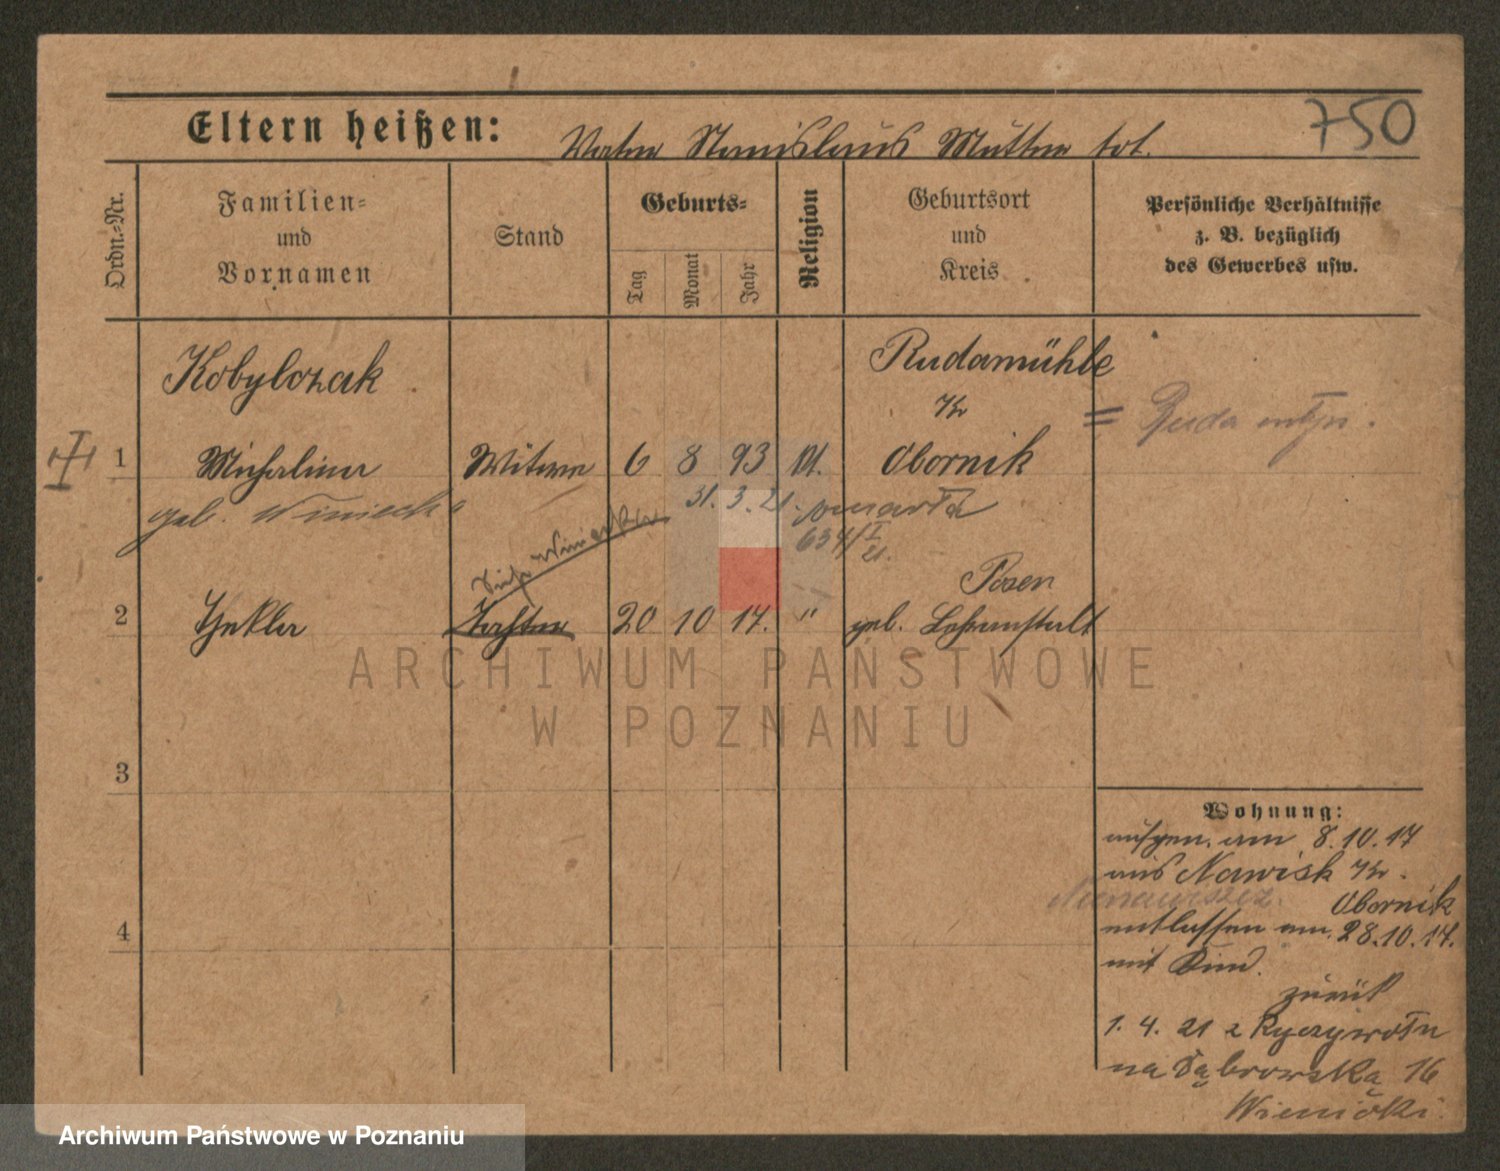 750
Eltern heißen: Vater Stanislaus Mutter tot.
Ordn.-Nr.
Familien-
und
Vornamen
Stand
Geburts-
Tag
Monat
Jahr
Religion
Geburtsort
und
Kreis
Persönliche Verhältnisse
z. B. bezüglich
des Gewerbes usw.
Kobylczak
Rudamühle
Kr
= Ruda młyn.
1 Michalina Witwe 6 8 93 kt. Obornik
geb. Winiecka
31. 3. 21. umarła
634/I
21.
siehe Winiecka
Posen
2 Thekla Tochter 20 10 17. " geb. Hebeanstalt
3
4
Wohnung:
aufgen. am 8.10.17
aus Nawisk Kr.
Obornik
entlassen am 28.10.17.
mit Kind.
zurück
1. 4. 21 z Ryczywołu
na Dąbrowską 16
Winiecki.
ARCHIWUM PAŃSTWOWE
W POZNANIU
Archiwum Państwowe w Poznaniu